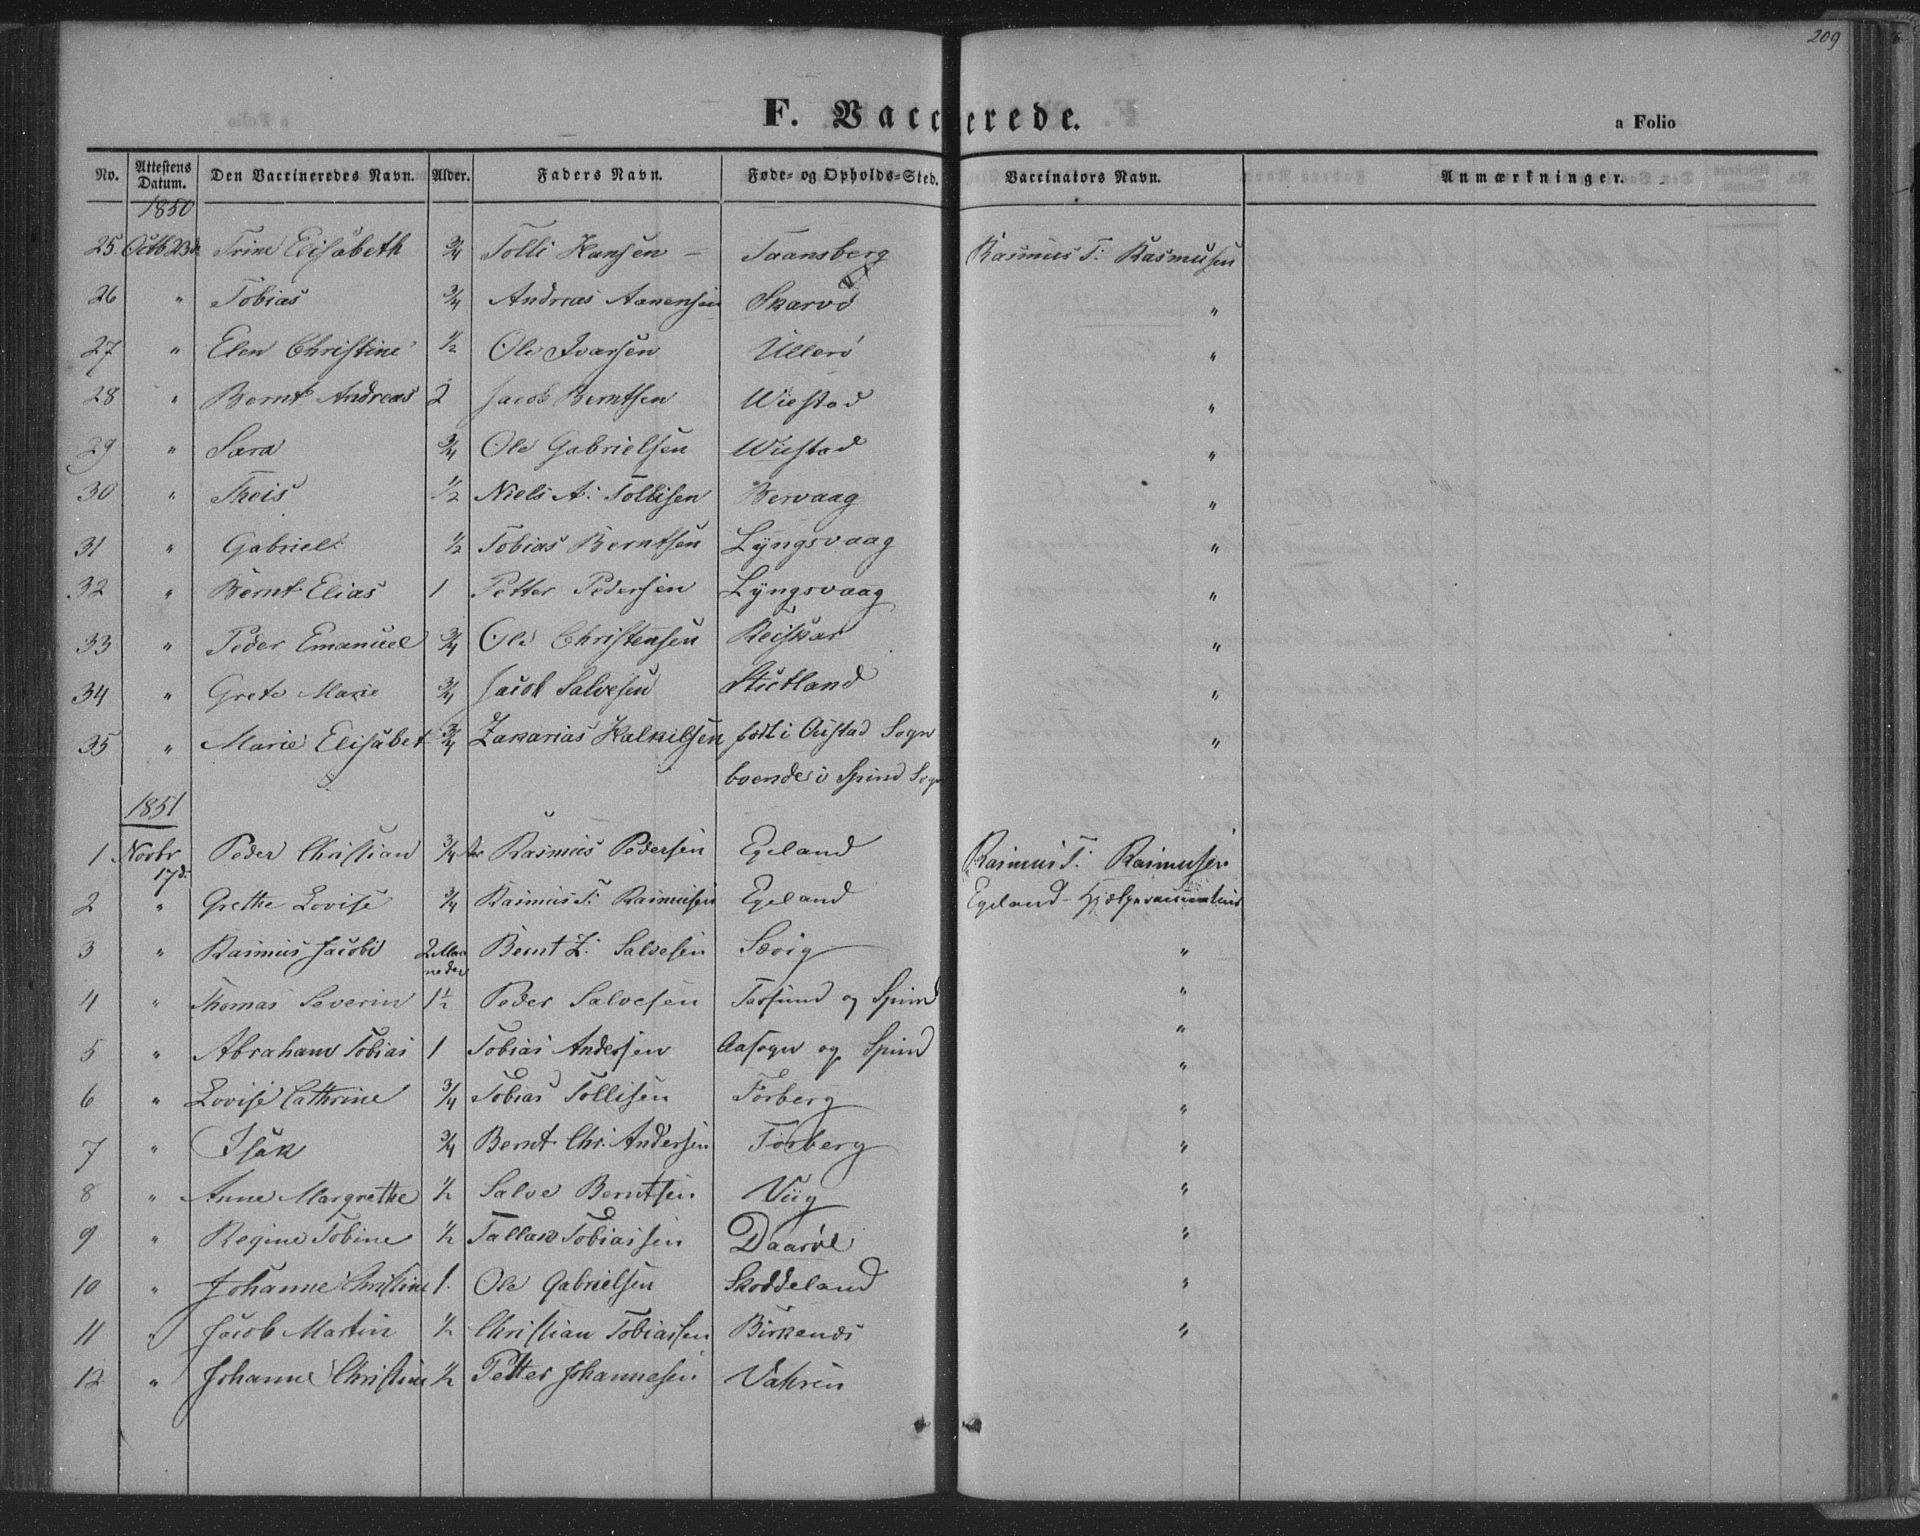 209
F. Vaccinerede.
a Folio
No. Attestens Datum. Den Vaccineredes Navn. Alder. Faders Navn. Føde- og Opholds-Sted. Vaccinators Navn. Anmærkninger.
1850
25. Octb 23d Trine Elisabeth 3/4 Tolli Hansen – Taansberg Rasmus T: Rasmusen
26 " Tobias 3/4 Andreas Aanensen Skarvö "
27 " Elen Christine 1/2 Ole Ivarsen Ullerö "
28 " Bernt Andreas 2 Jacob Berntsen Wiestad "
29 " Sara 3/4 Ole Gabrielsen Wiestad "
30 " Theis 1/2 Niels A: Tollisen Bervaag "
31 " Gabriel 1/2 Tobias Berntsen Lyngsvaag "
32 " Bernt Elias 1 Petter Pedersen Lyngsvaag "
33 " Peder Emanuel 3/4 Ole Christensen Reiskar "
34 " Grete Marie 3/4 Jacob Salvesen "
35 " Marie Elisabet 3/4 Zakarias Halkilsen født i Austad Sogn "
boende i Spind Sogn
1851
1 Novbr 17d. Peder Christian 3/4 Aar Rasmus Pedersen Egeland Rasmus T: Rasmusen
2 " Grethe Lovise 3/4 Rasmus T: Rasmusen Egeland Egeland – Hjelpevaccinateur
3 " Rasmus Jacob 2 Maaneder Bernt Z: Salvesen Sævig "
4 " Thomas Severin 1½ Peder Salvesen Farsund og Spind "
5 " Abraham Tobias 1 Tobias Andersen Aasogn og Spind "
6 " Lovise Cathrine 3/4 Tobias Tollisen Forberg "
7 " Isak 3/4 Bernt Chr: Andersen Forberg "
8 " Anne Margrethe 1/2 Salve Berntsen Viig "
9 " Regine Tobine 1/2 Tallak Tobiassen "
10 " Johanne Christine 1. Ole Gabrielsen Skoddeland "
11 " Jacob Martin 1/2 Christian Tobiassen Birkenes "
12 " Johanne Christine 1/2 Petter Johannesen Vatne